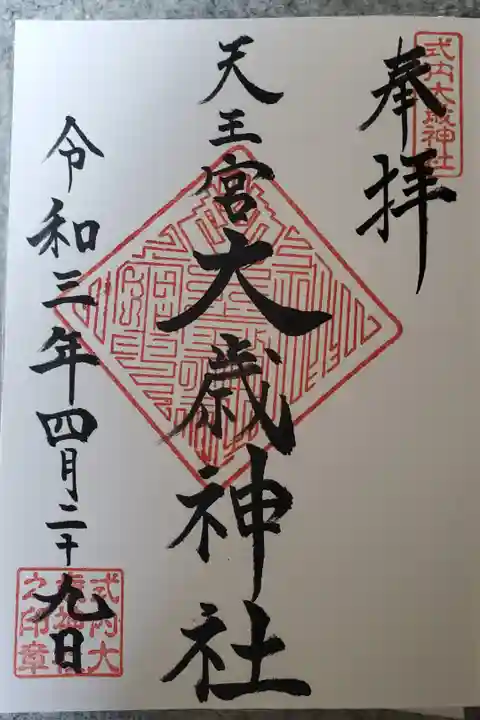 式内大歳神社
奉拝
天王宮大歳神社
令和三年四月二十九日
式内大
歳神社
之印章